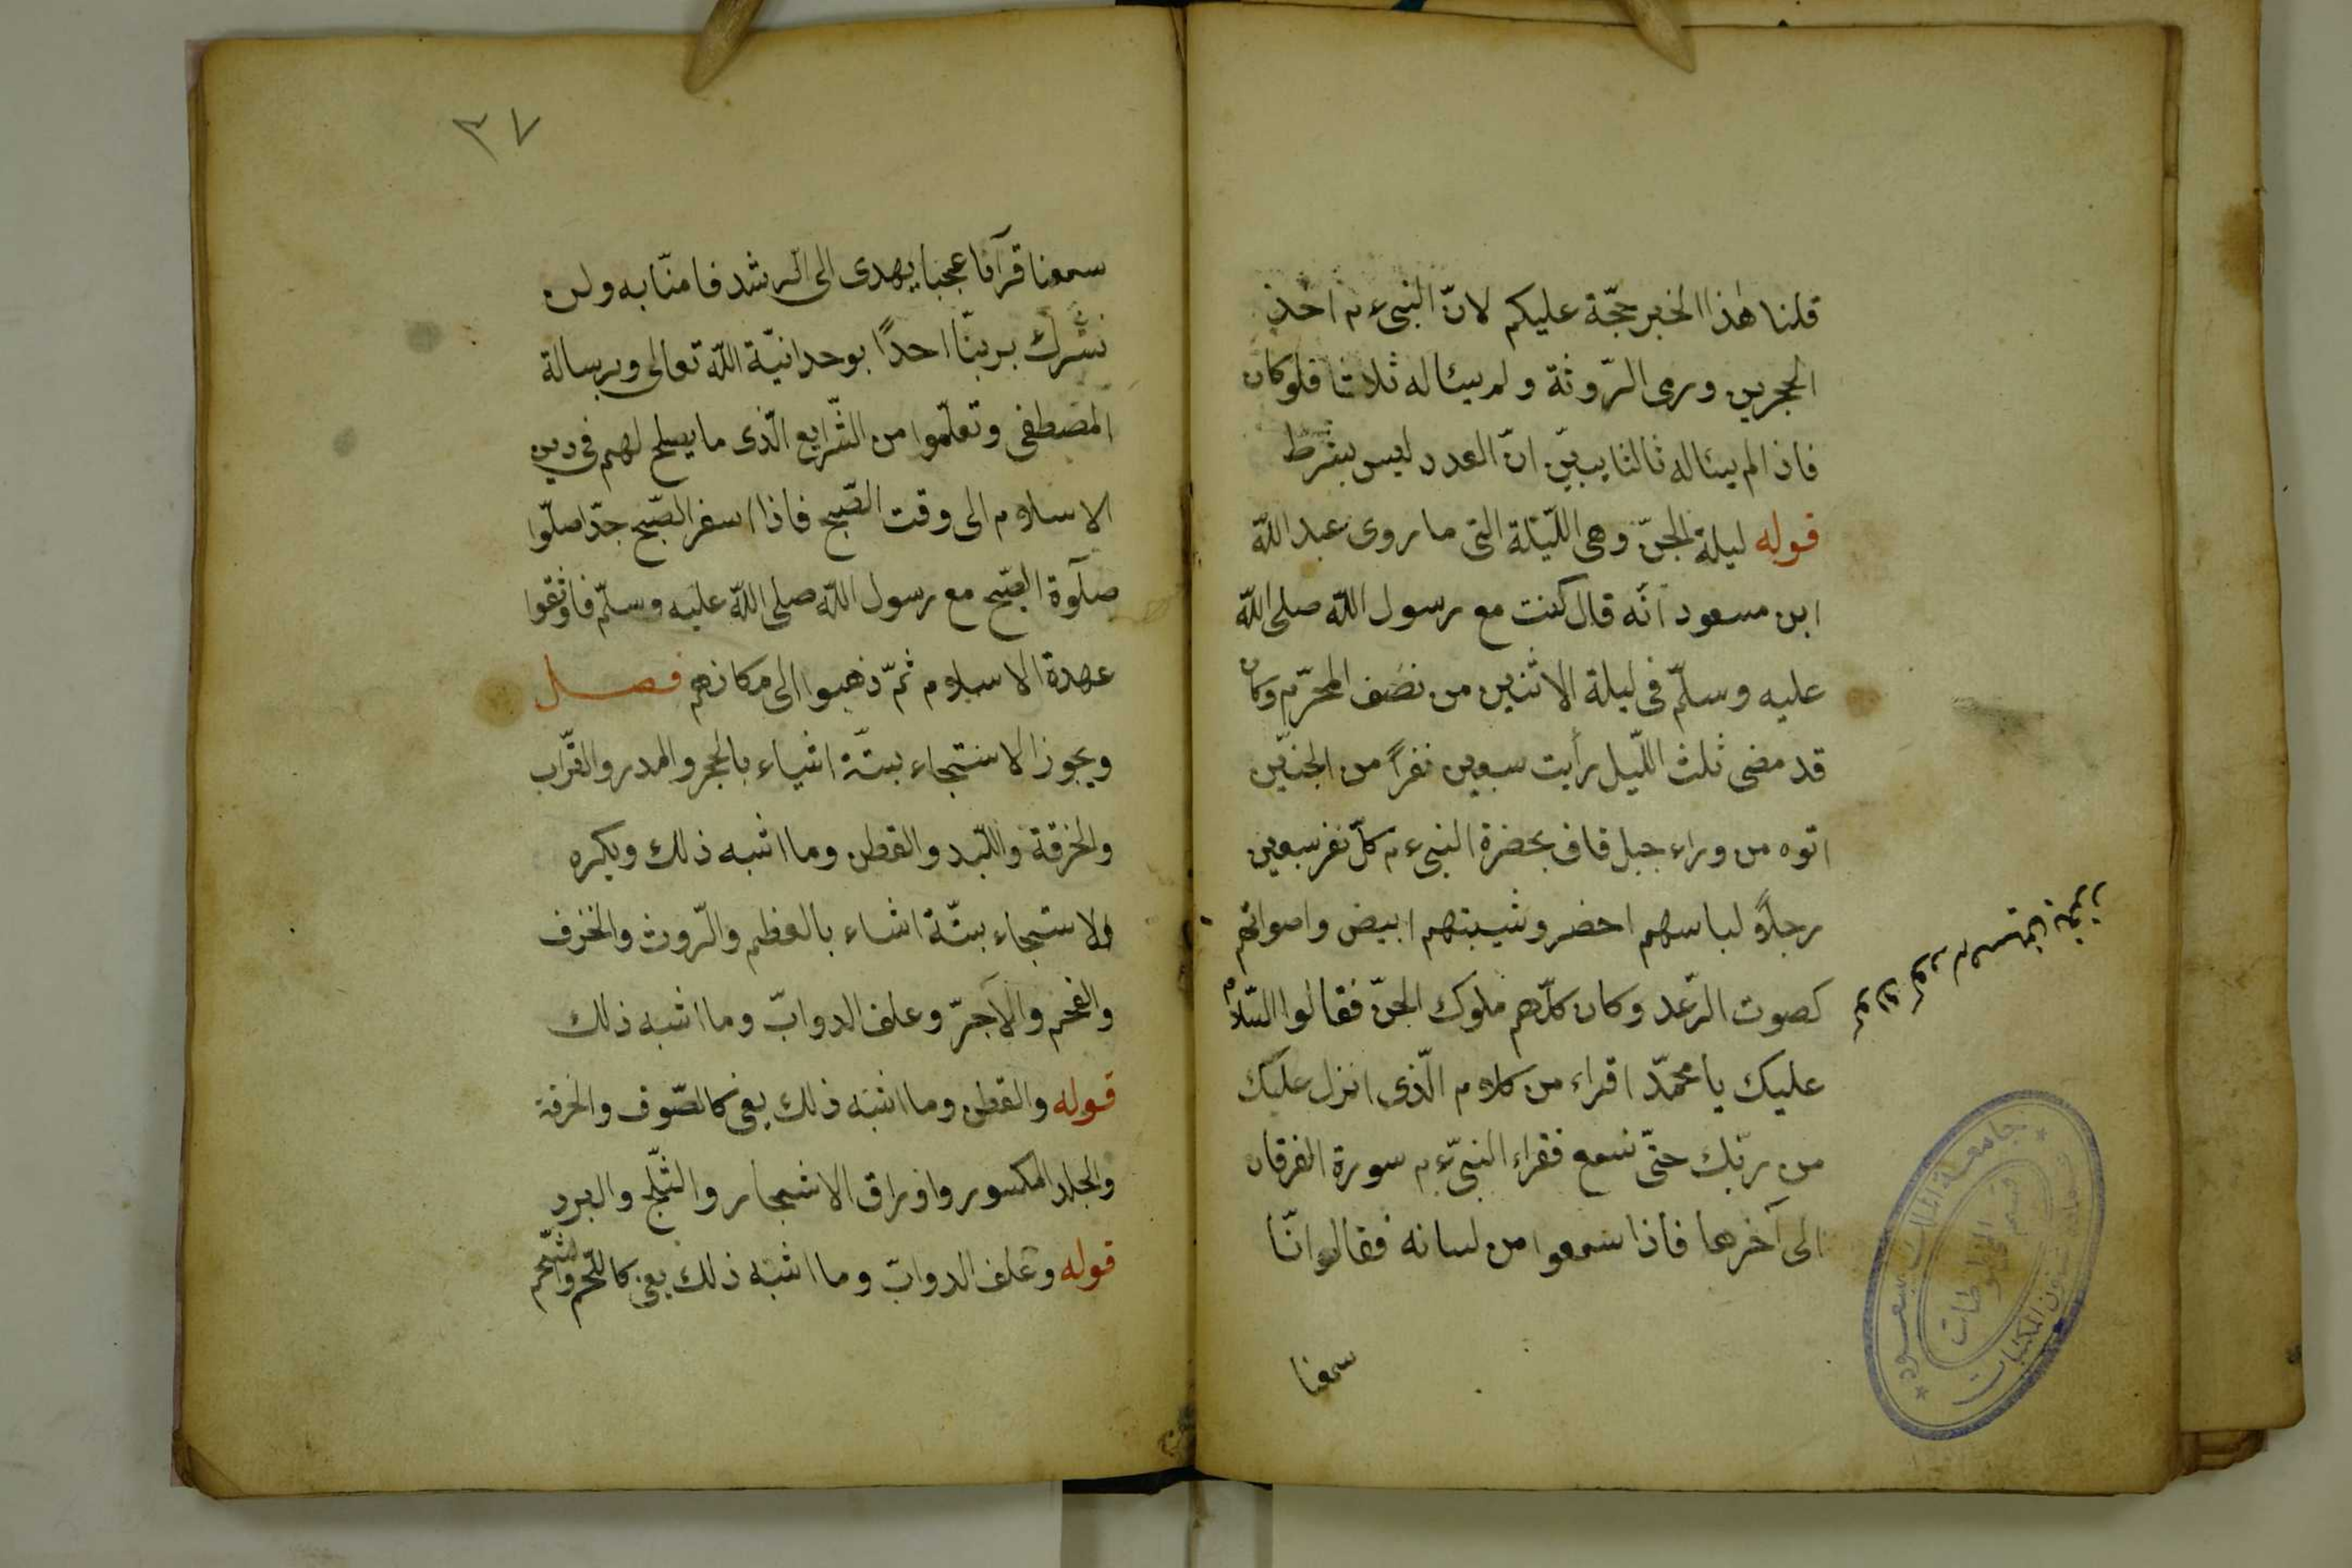 قلنا هذا الخبر حجّة عليكم لانّ النبىء م اخذ
الحجرين ورمى الرّوثة ولم يسئاله ثلاثا فلوكان
فاذا لم يسئاله ثالثا يبيّن انّ العدد ليس بشرط
قوله ليلة الجنّ وهى اللّيلة التى ما روى عبد اللّه
ابن مسعود انّه قال كنت مع رسول اللّه صلى اللّه
عليه وسلّم فى ليلة الاثنين من نصف المحرّم وكان
قد مضى ثلث اللّيل رأيت سبعين نفراً من الجنّين
اتوه من وراء جبل قاف بحضرة النبىء م كلّ نفر سبعين
رجلاً ولباسهم احضر وشيبتهم ابيض واصواتهم
كصوت الرّعد وكان كلّهم ملوك الجنّ فقالوا السّلام
عليك يا محمّد اقراء من كلام الّذى انزل عليك
من ربّك حتّى نسمع فقراء النبىّء م سورة الفرقان
الى آخرها فاذا سمعوا من لسانه فقالوا انّا
سمعنا
جامعة الملك سعود
قسم المخطوطات
شؤون المكتبات
٣٧
سمعنا قرآنا عجبا يهدى الى الرشد فامنّا به ولن
نشرك بربنّا احدًا بوحدانيّة اللّه تعالى وبرسالة
المصطفى وتعلّموا من الشّرايع الّذى ما يصلح لهم فى دين
الاسلام الى وقت الصّبح فاذا اسفر الصّبح جدّا صلّوا
صلوة الصّبح مع رسول اللّه صلى اللّه عليه وسلّم فاوثقوا
عهدة الاسلام ثمّ ذهبوا الى مكانهم فصل
ويجوز الاستنجاء بستّة اشياء بالحجر والمدر والتّراب
والخرقة واللّبد والقطن وما اشبه ذلك ويكره
والاستنجاء بستّة اشاء بالعظم والرّوث والخزف
والفحم والآجرّ وعلف الدوابّ وما اشبه ذلك
قوله والقطن وما اشبه ذلك يعنى كالصّوف والخرقة
والجلد المكسور واوراق الاشجار والثّلج والبرد
قوله وعلف الدوابّ وما اشبه ذلك يعنى كاللّحم والشّحم